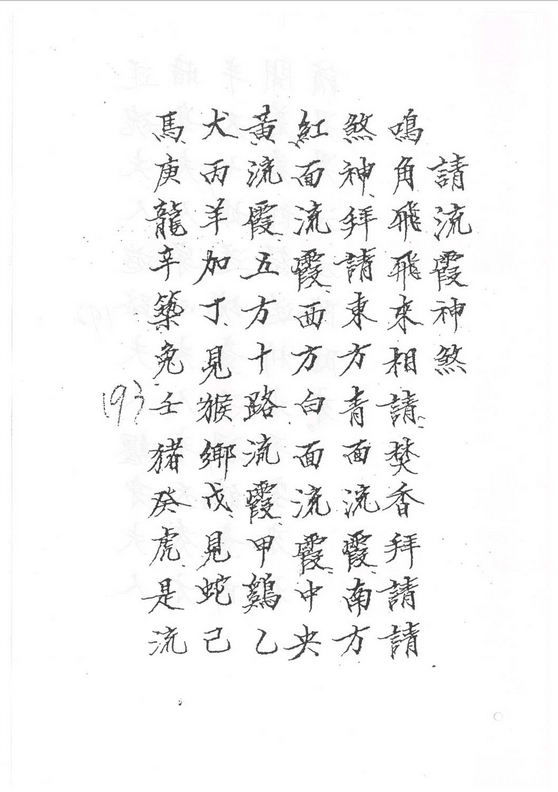 請流霞神煞
鳴角飛飛來相請焚香拜請請
煞神拜請東方青面流霞南方
紅面流霞西方白面流霞中央
黃流霞五方十路流霞甲鷄乙
犬丙羊加丁見猴鄉戊見蛇己
馬庚龍辛築兔壬猪癸虎是流
193